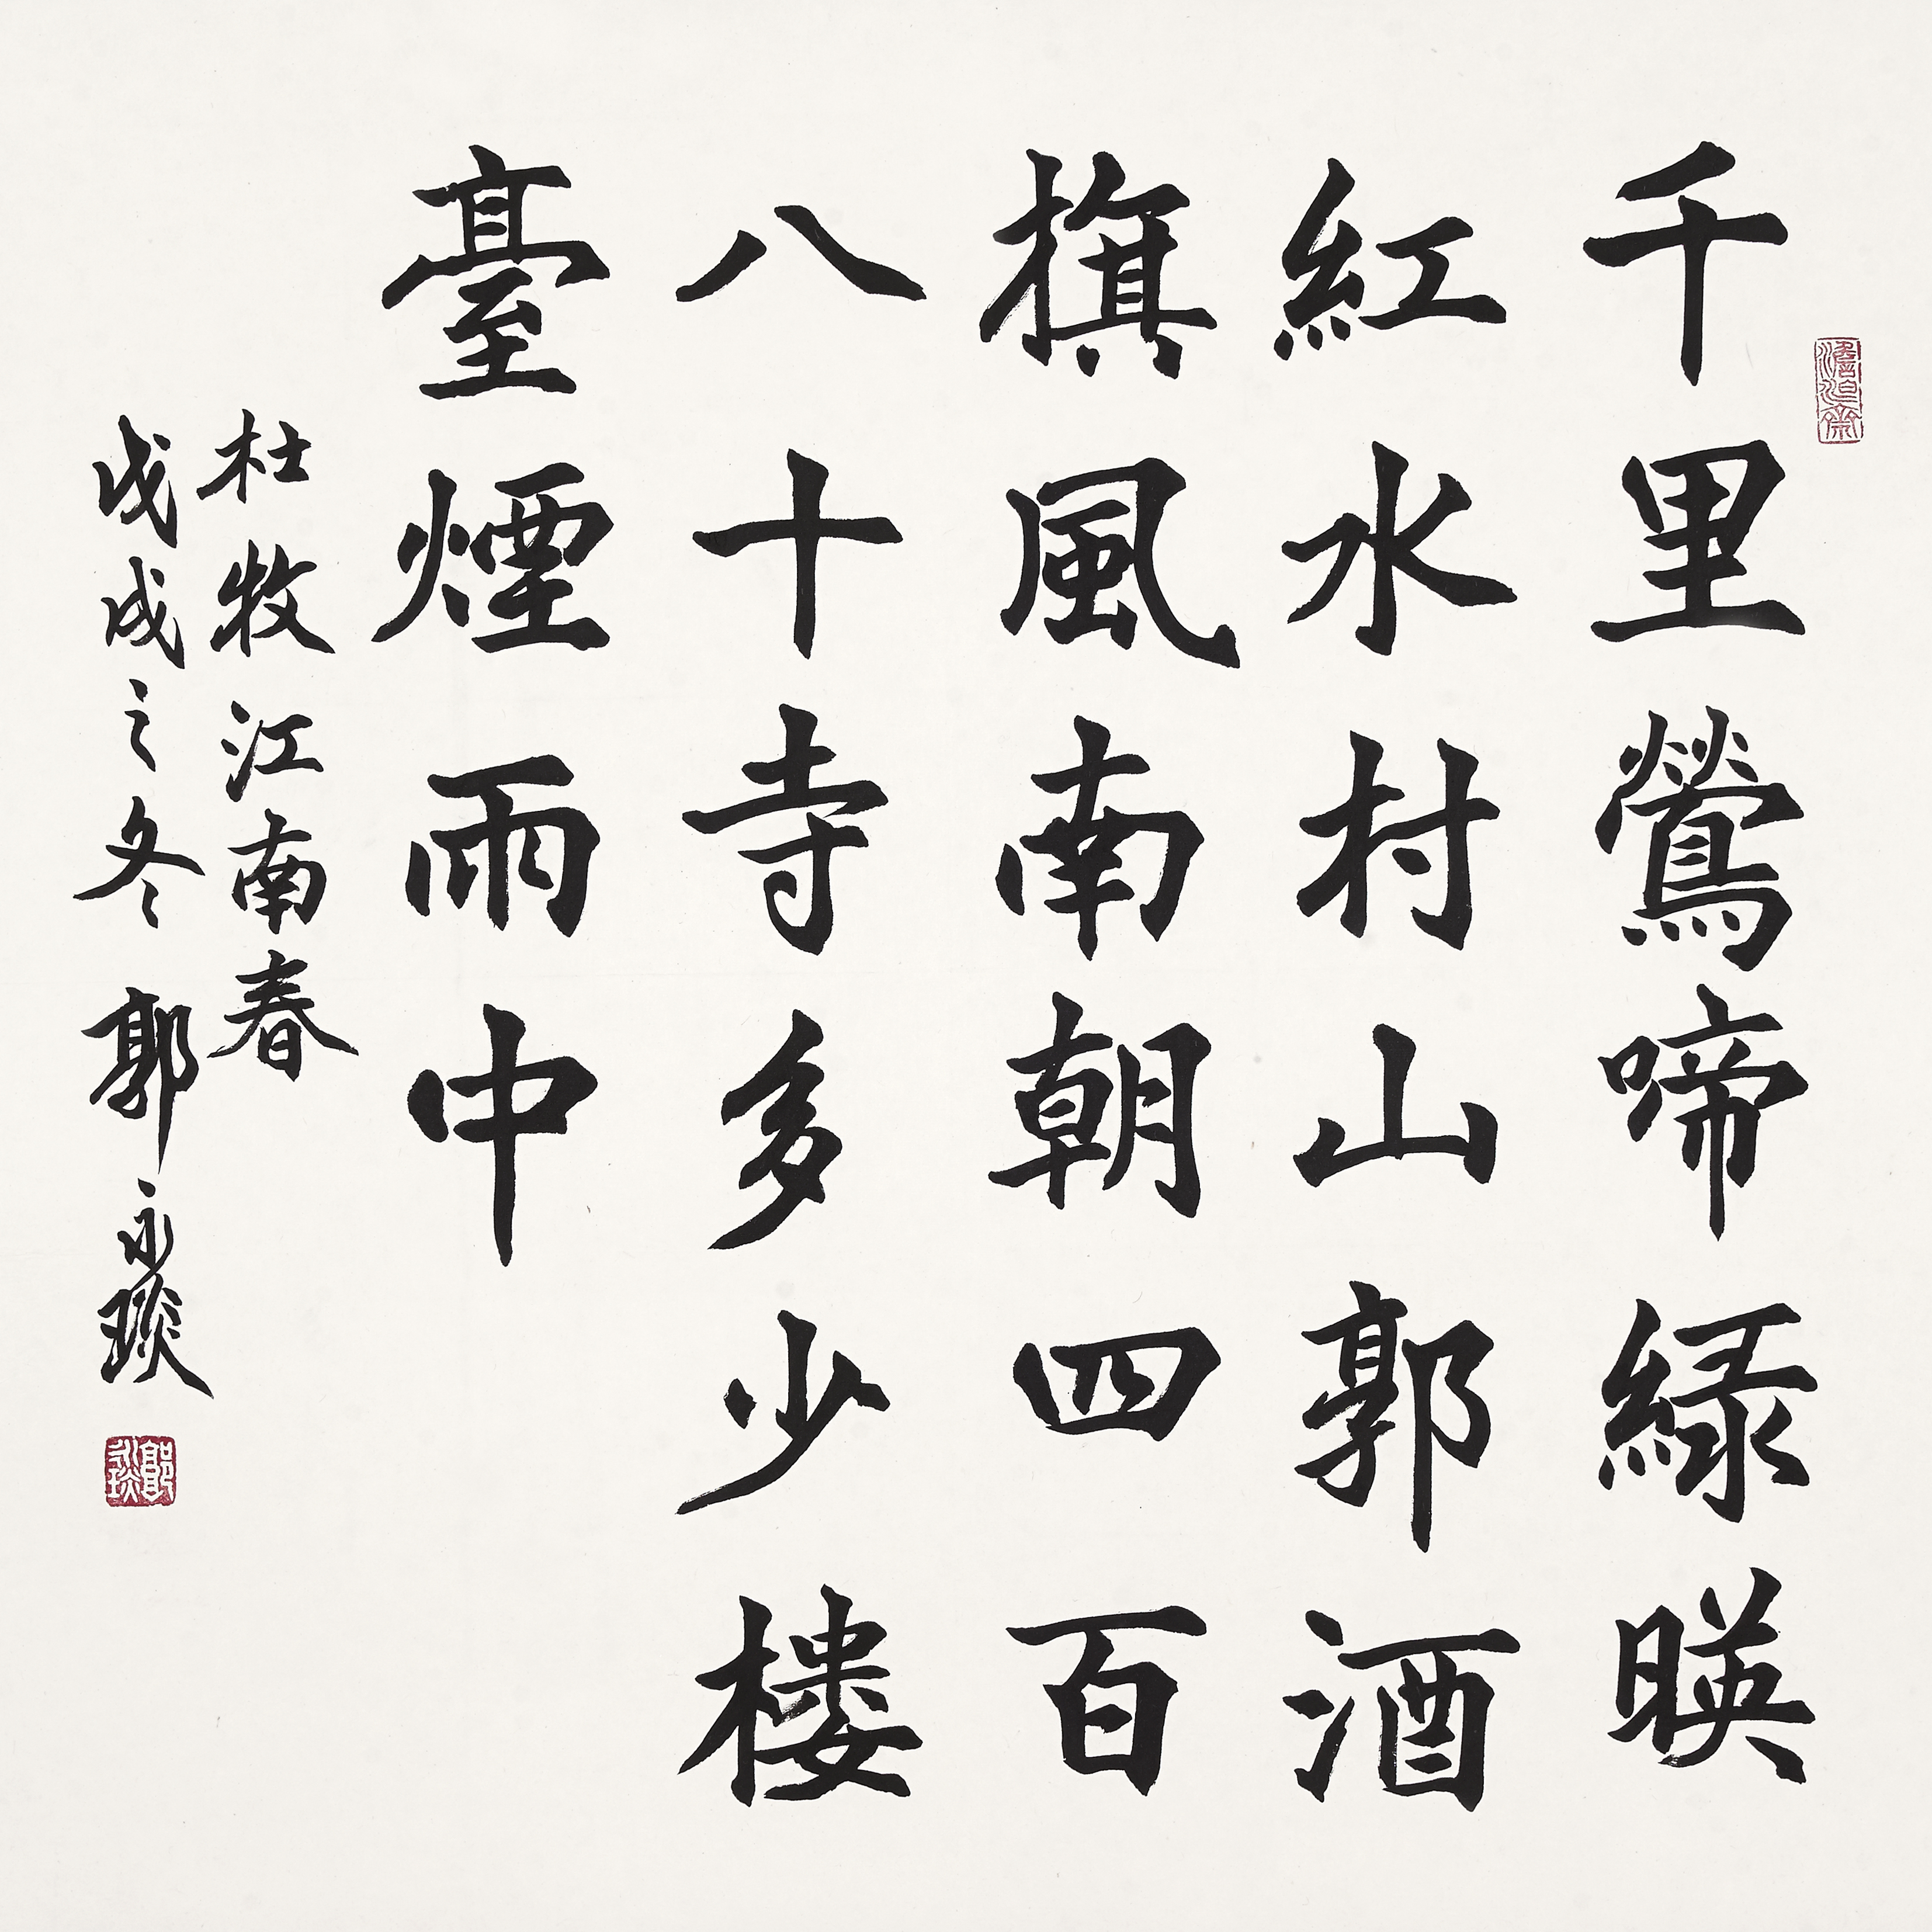 千里鶯啼緑暎
紅水村山郭酒
旗風南朝四百
八十寺多少楼
臺煙雨中
杜牧江南春
戊戌之冬郭永琰
郭永琰